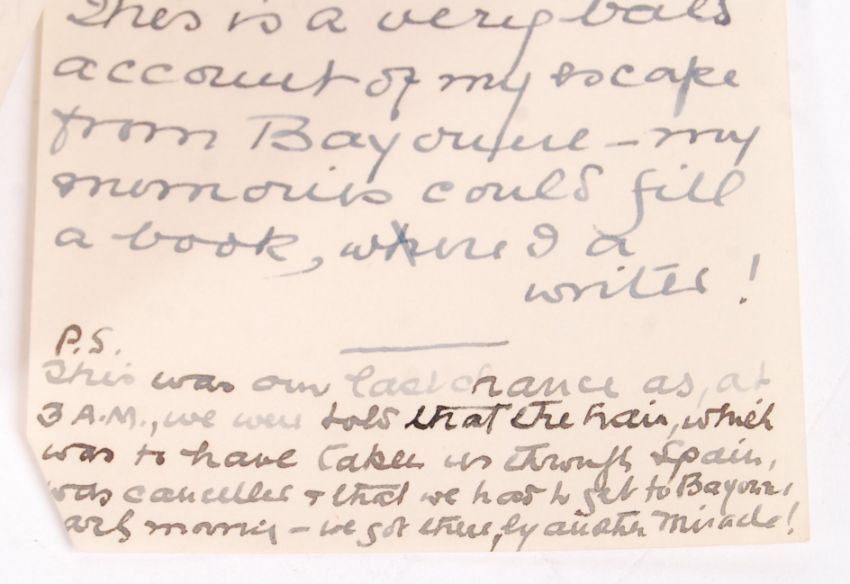 This is a very bald
account of my escape
from Bayonne – my
memories could fill
a book, were I a
writer!
P.S.
This was our last chance as, at
3 A.M., we were told that the train, which
was to have taken us through Spain,
was cancelled & that we had to get to Bayonne
early morning – we got there, by another miracle!